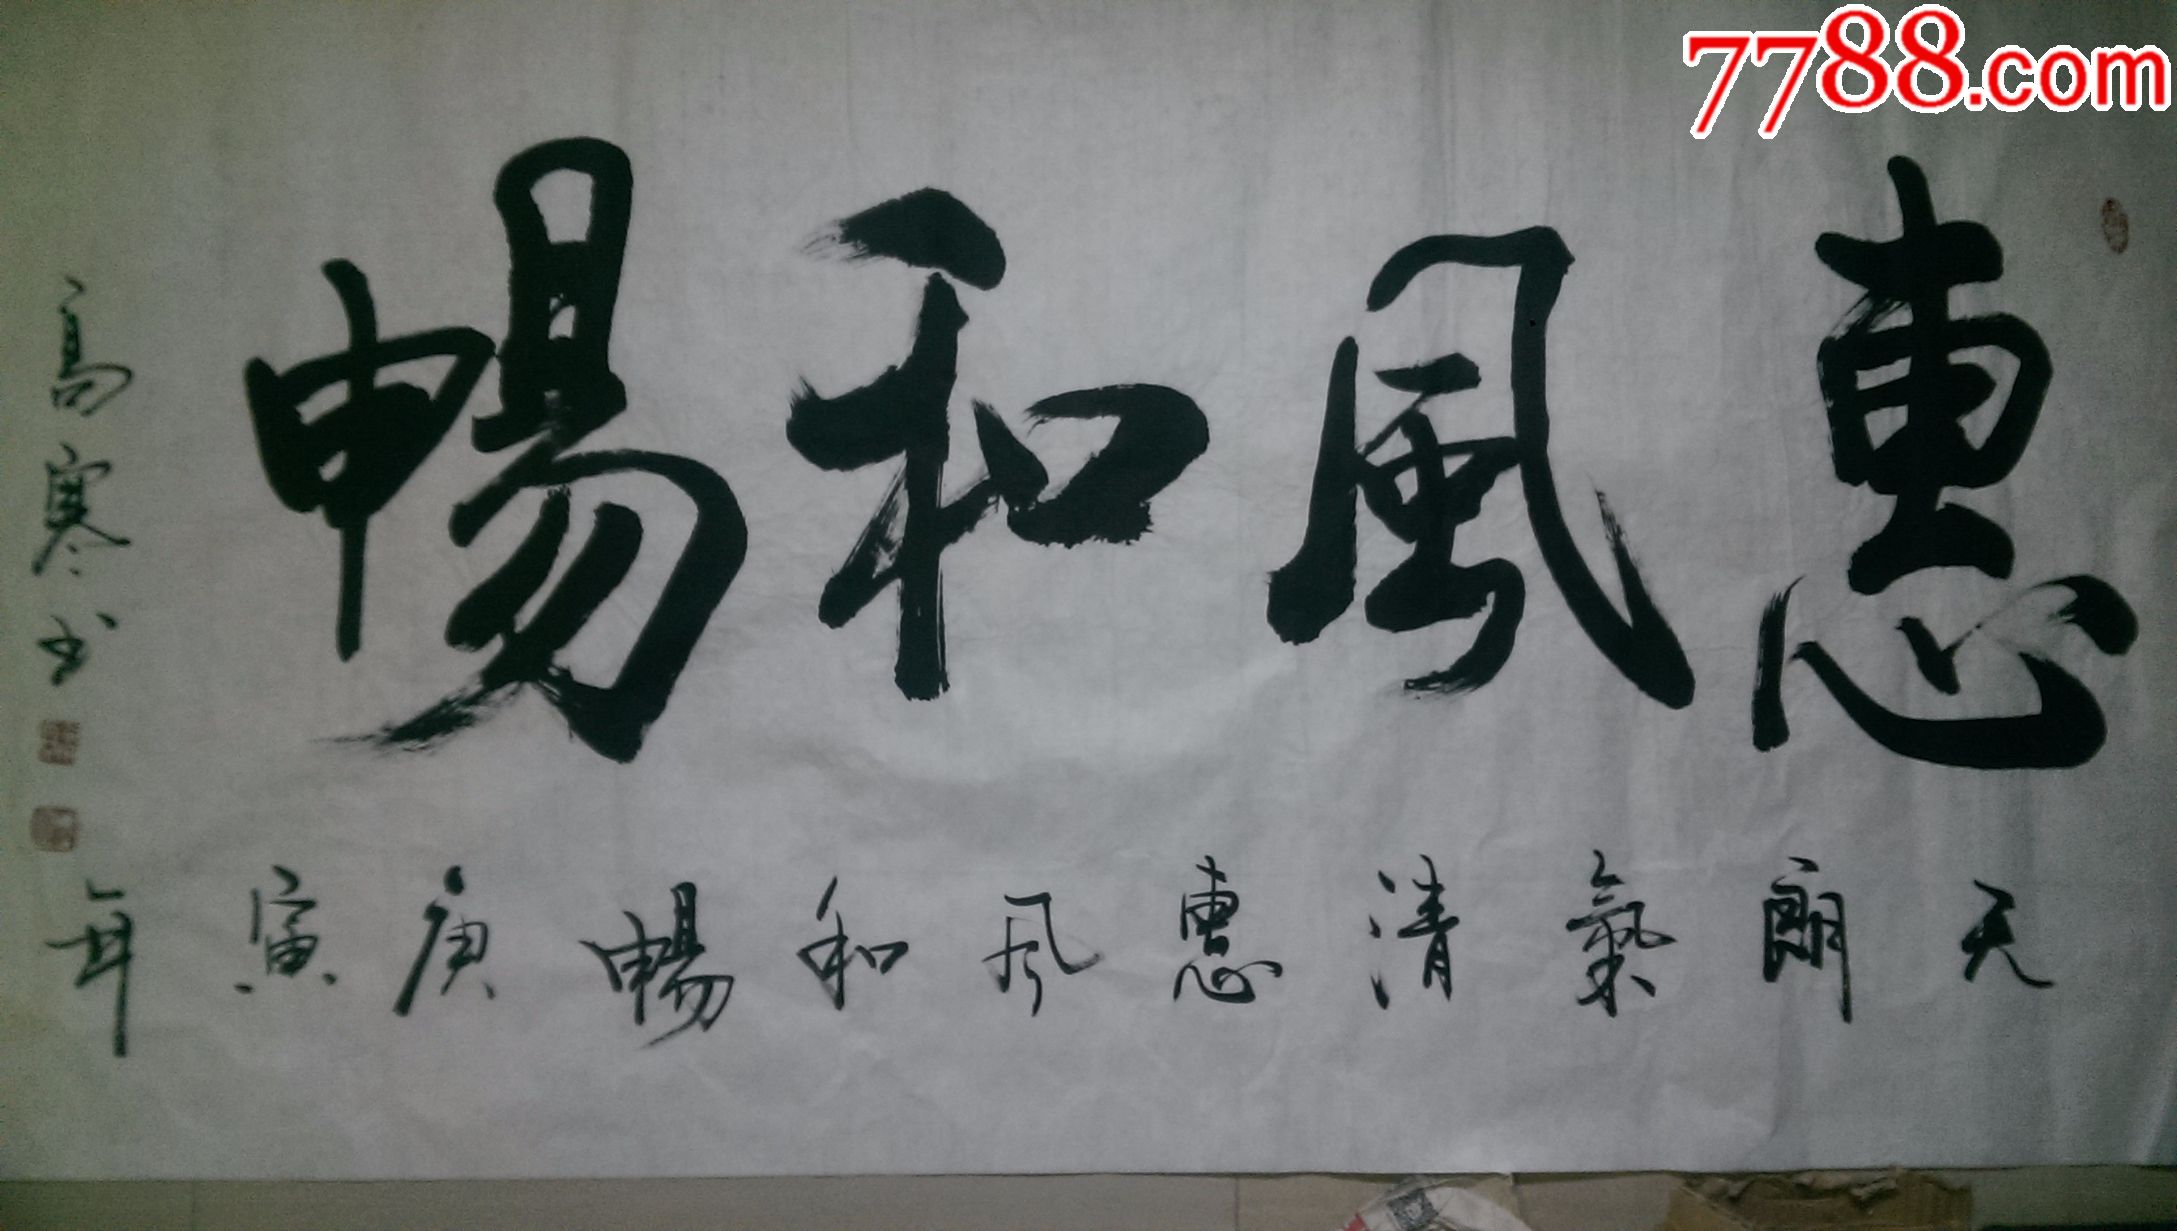 7788.com
惠風和暢
天朗氣清惠风和暢庚寅年
高寒书